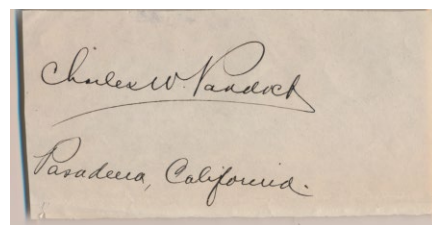 Charles W. Paddock
Pasadena, California.